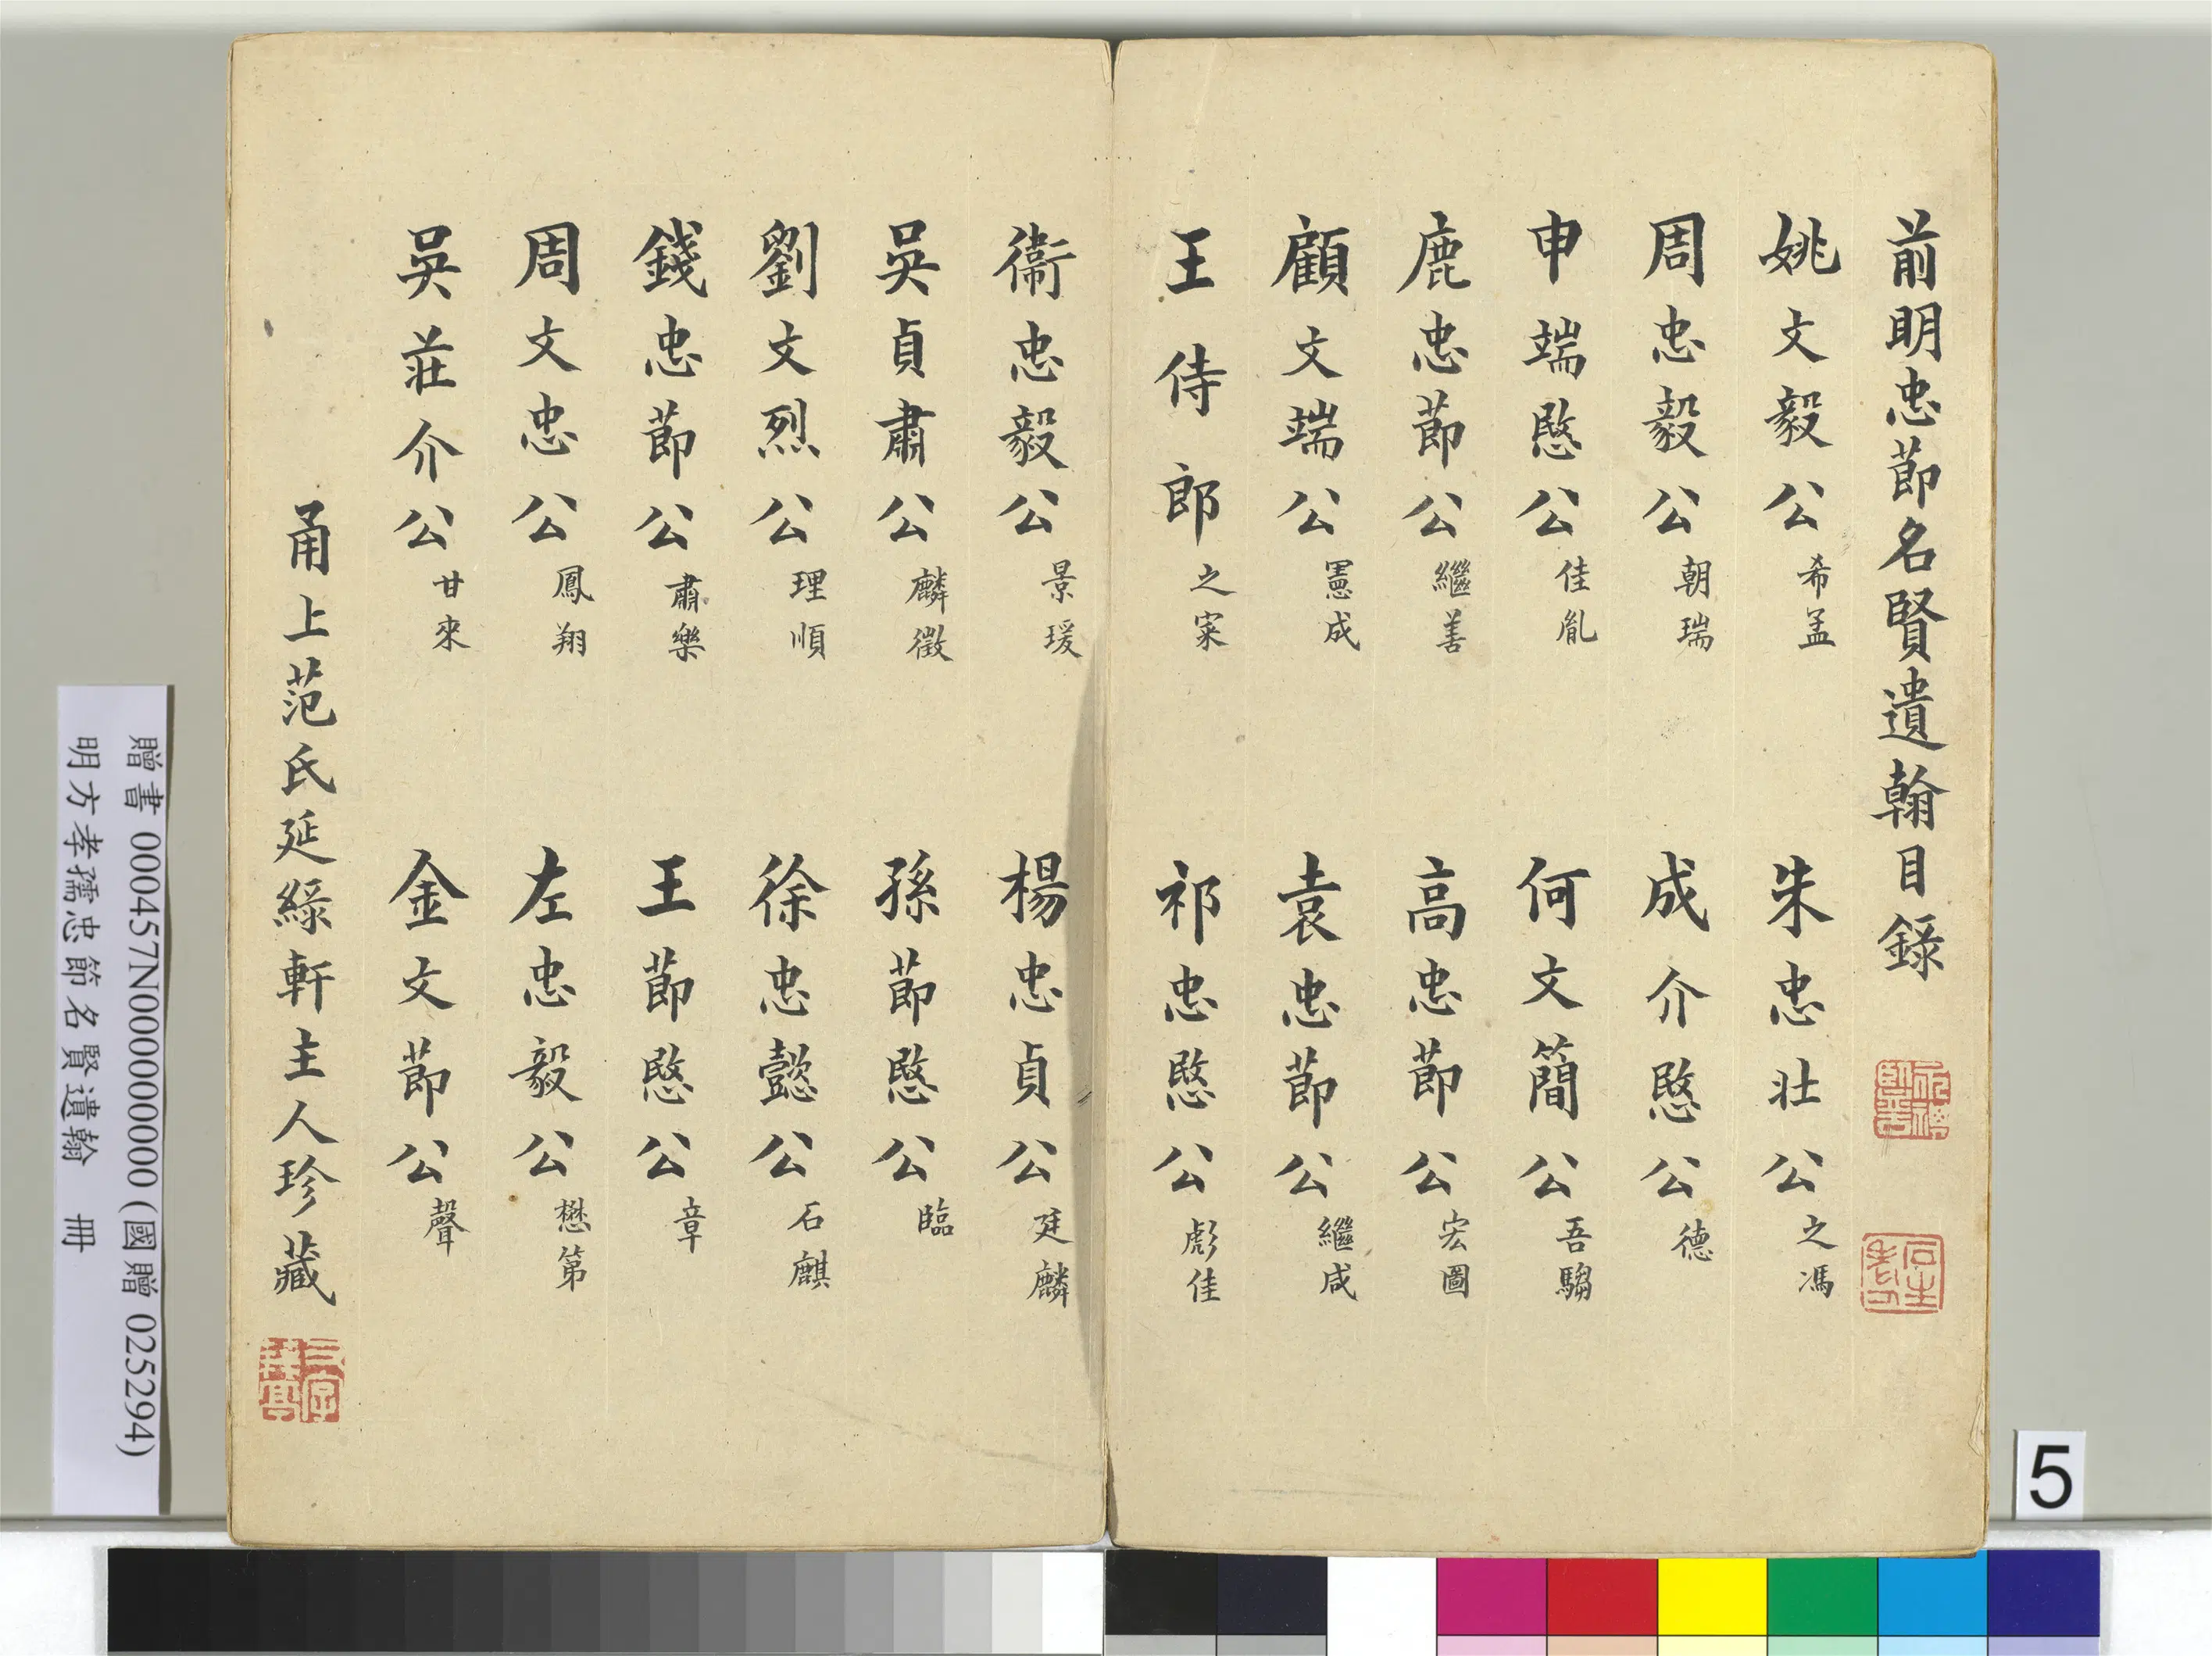 前明忠節名賢遺翰目錄
姚文毅公希孟　朱忠壯公之馮
周忠毅公朝瑞　成介愍公德
申端愍公佳胤　何文簡公吾騶
鹿忠節公繼善　高忠節公宏圖
顧文端公憲成　袁忠節公繼咸
王侍郎之寀　祁忠愍公彪佳
衞忠毅公景瑗　楊忠貞公廷麟
吳貞肅公麟徵　孫節愍公臨
劉文烈公理順　徐忠懿公石麒
錢忠節公肅樂　王節愍公章
周文忠公鳳翔　左忠毅公懋第
吳莊介公甘來　金文節公聲
甬上范氏延綠軒主人珍藏
贈書 000457N000000000 (國贈 0252294)
明方孝孺忠節名賢遺翰　冊
5